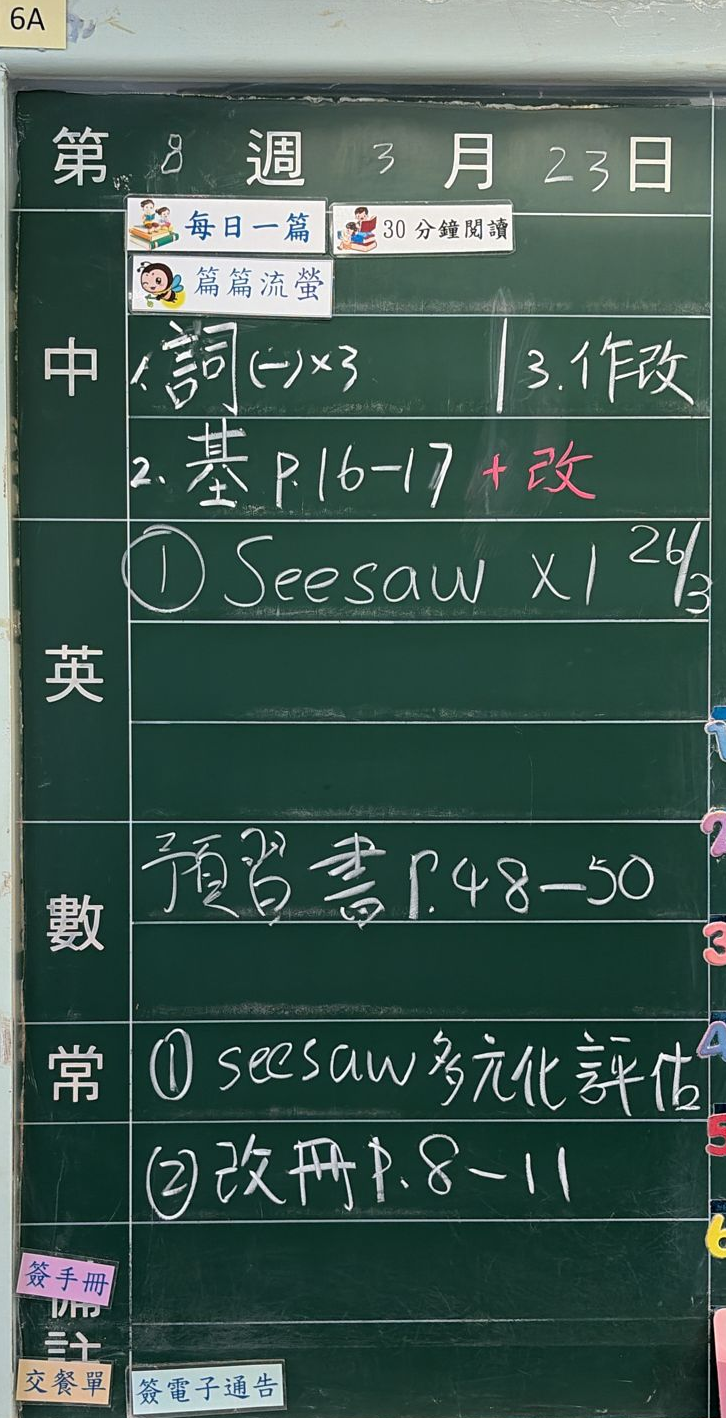 6A
第 8 週 3 月 23 日
每日一篇 30分鐘閱讀
篇篇流螢
中
1.詞(一)×3 3.作改
2.基 P.16-17 +改
英
① Seesaw ×1 26/3
數
預習書P.48-50
常
① seesaw多元化評估
② 改冊P.8-11
簽手冊
備註
交餐單 簽電子通告
1
2
3
4
5
6